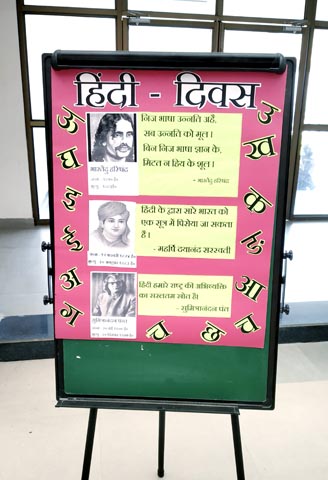 हिंदी - दिवस
निज भाषा उन्नति अहै,
सब उन्नति को मूल।
बिन निज भाषा ज्ञान के,
मिटत न हिय के शूल।
- भारतेंदु
भारतेंदु
हिंदी के द्वारा सारे भारत को
एक सूत्र में पिरोया जा सकता
है।
- महर्षि दयानंद सरस्वती
हिंदी हमारे राष्ट्र की अभिव्यक्ति
का सरलतम स्रोत है।
- सुमित्रानंदन पंत
सुमित्रानंदन पंत
अ
घ
इ
अ
ग
उ
ख
क
आ
च
छ